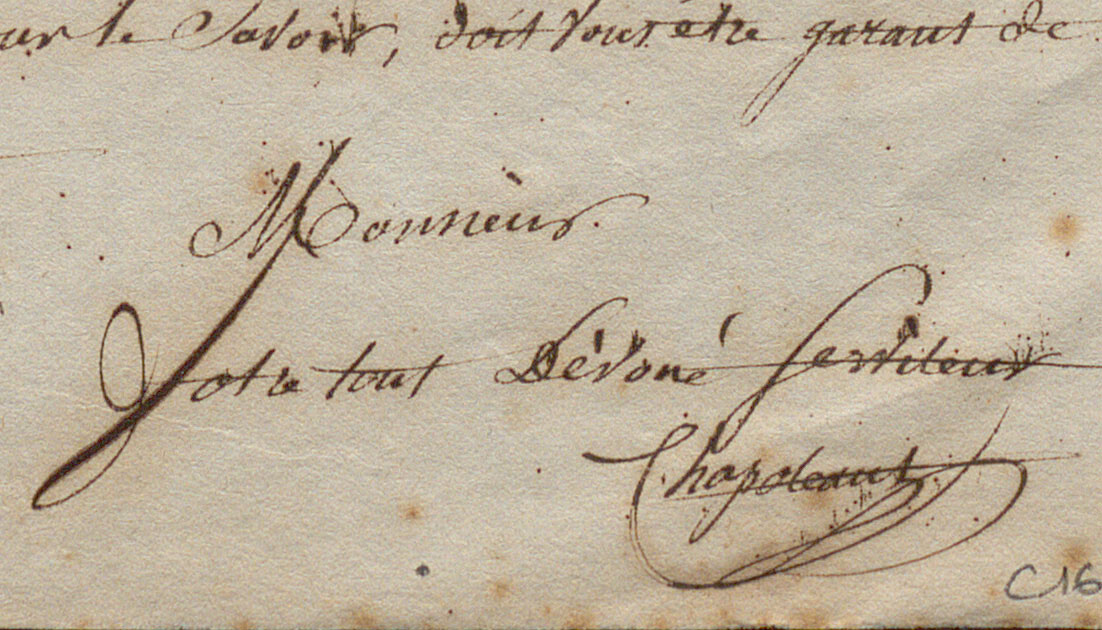 le Savoir, doit vous être garant de
Monsieur.
Votre tout Dévoué Serviteur
C16